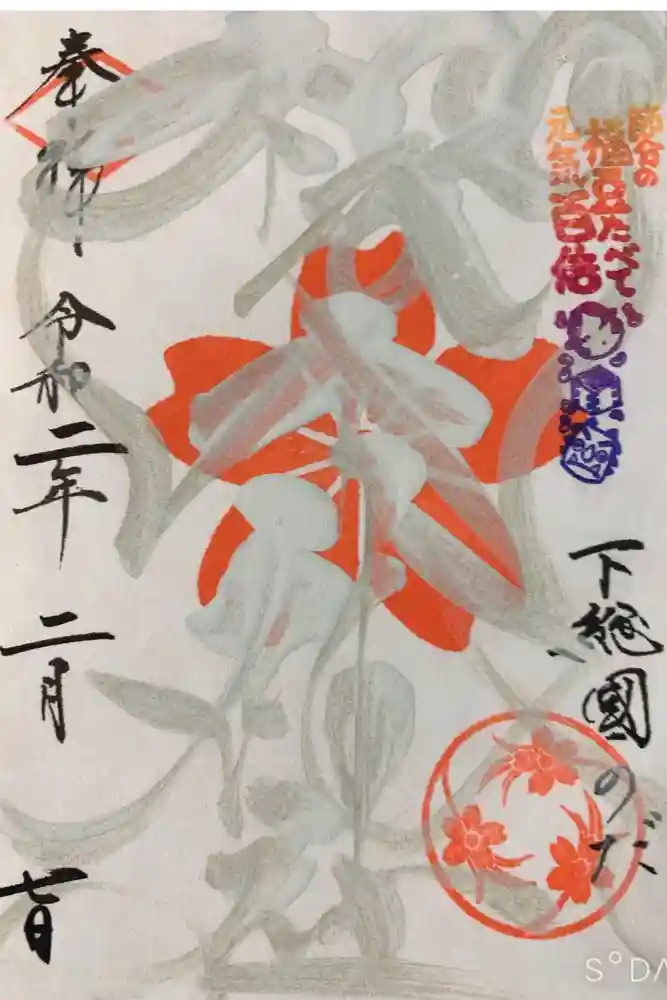 節分の
福豆たべて
元気百倍
下総國のだ
奉拝 令和二年 二月 七日
S°DA